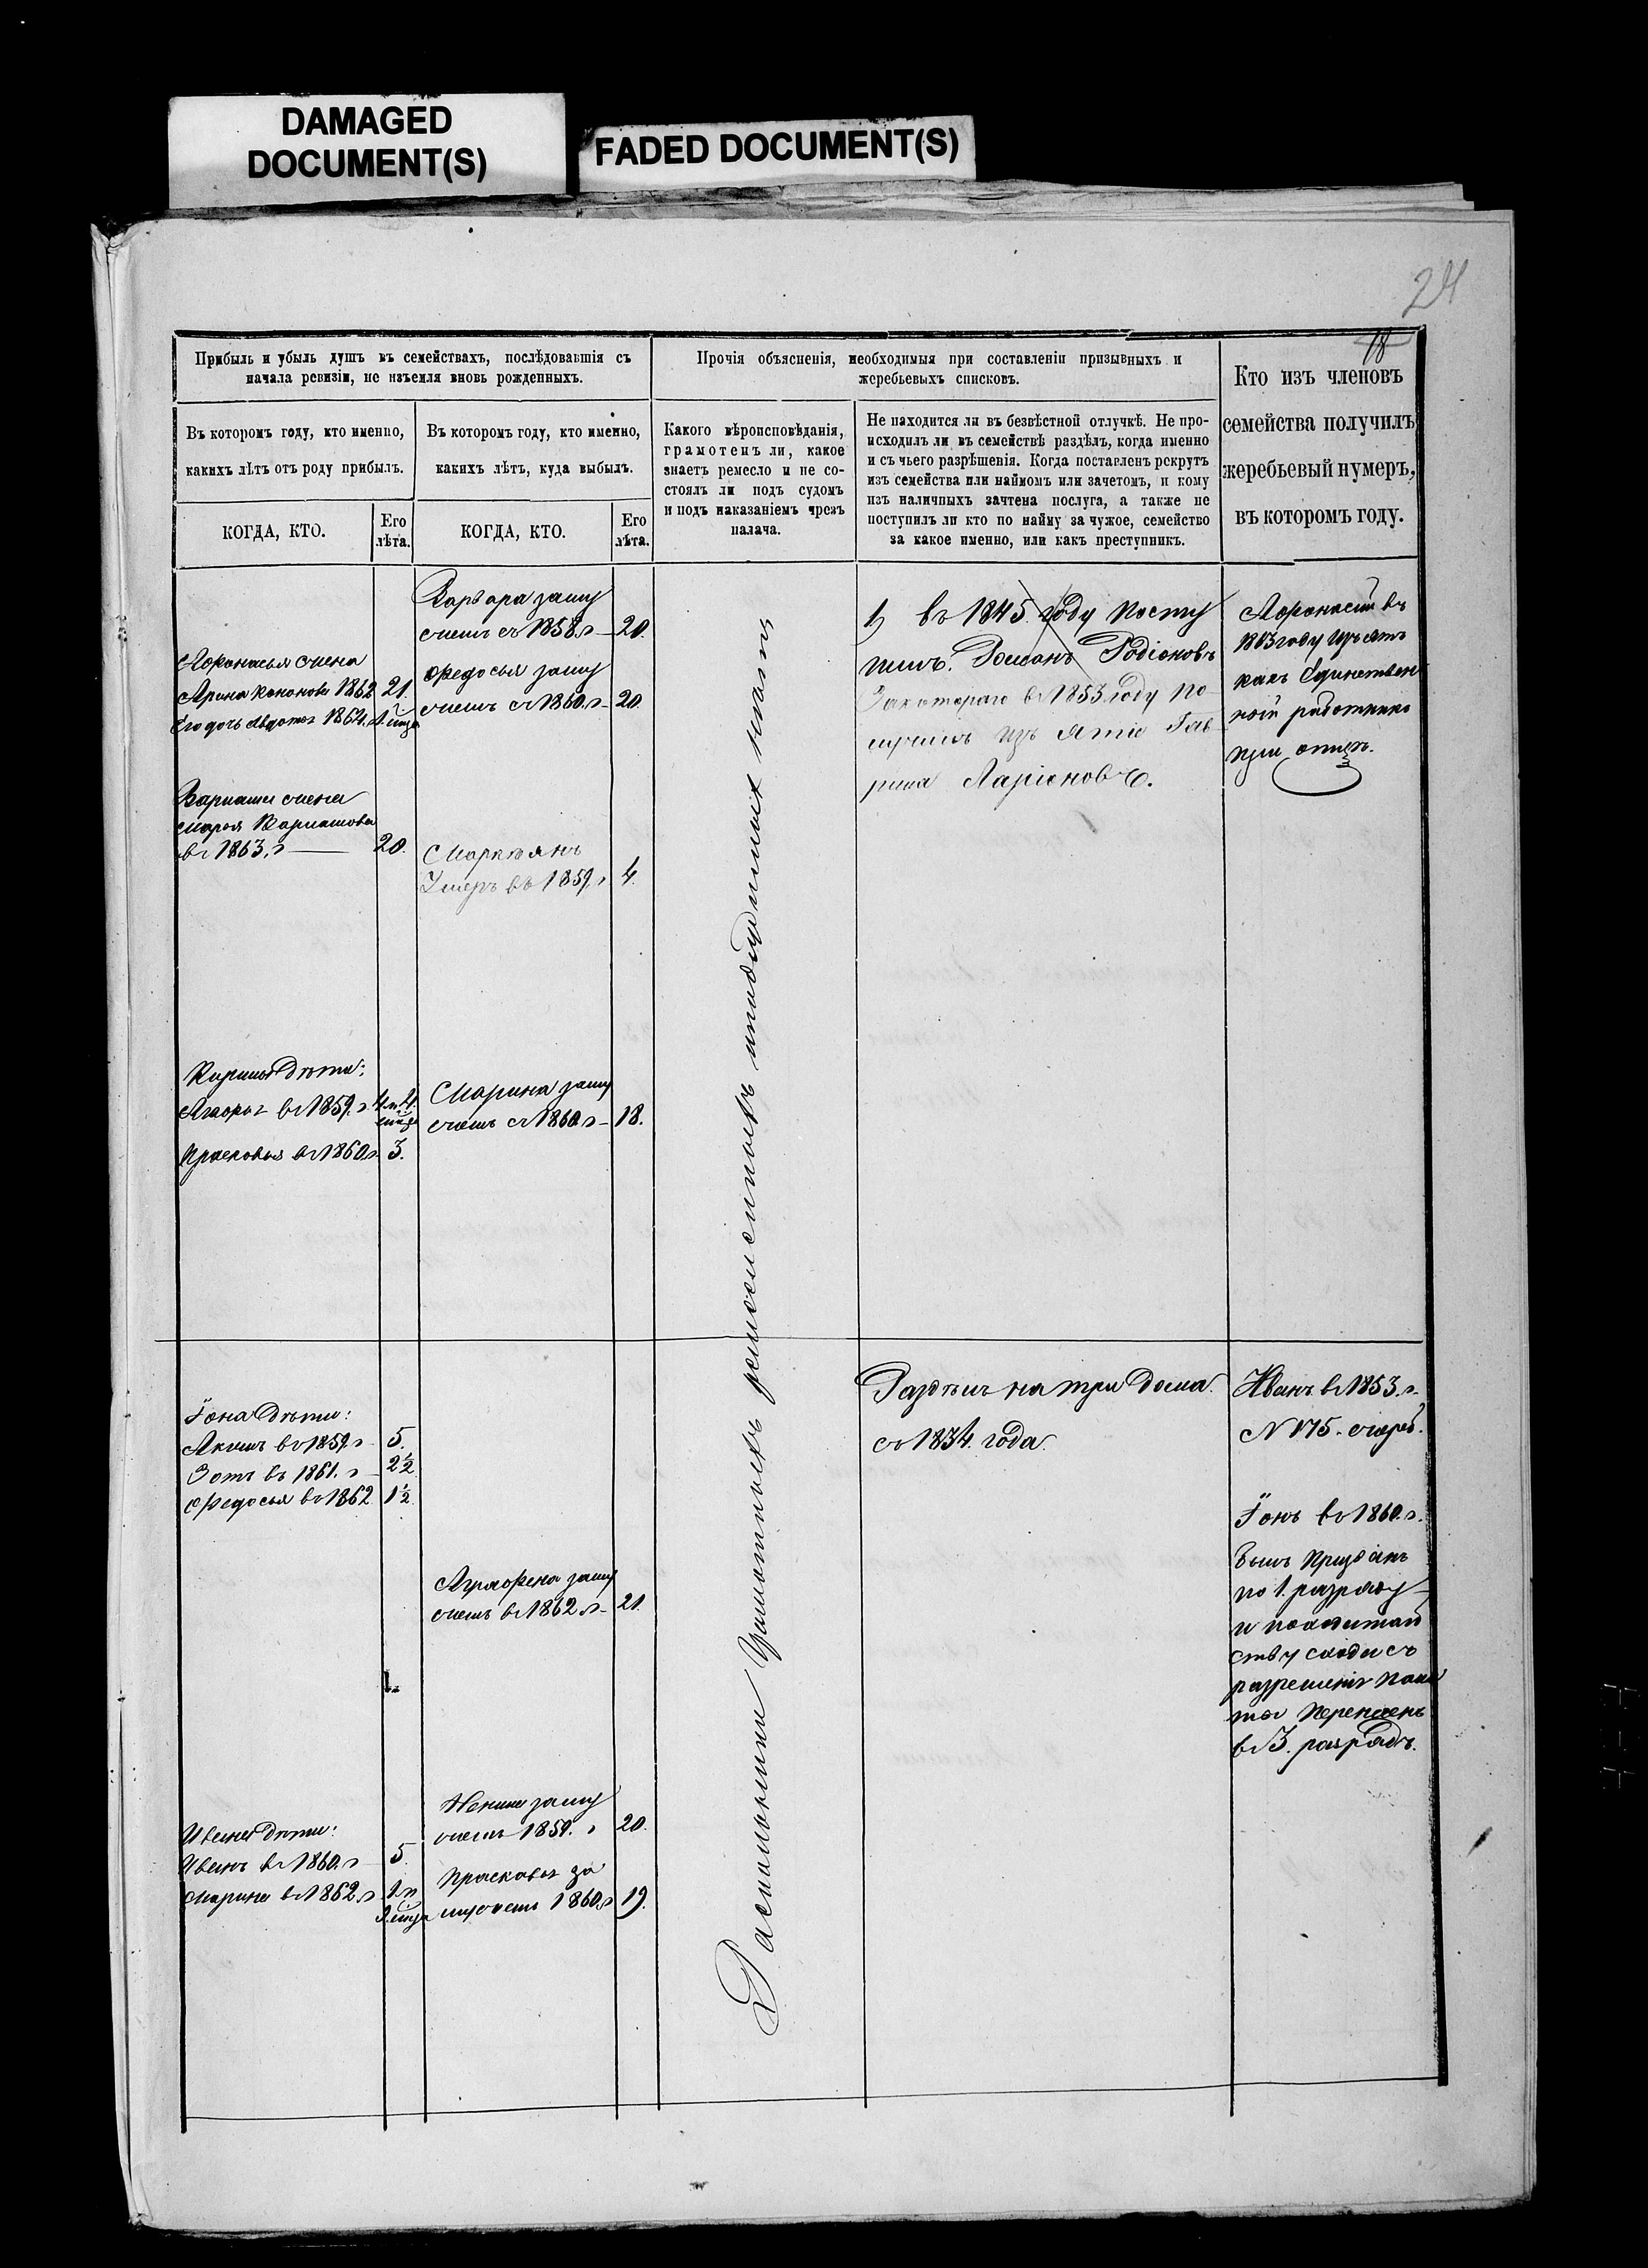 DAMAGED
DOCUMENT(S)
FADED DOCUMENT(S)
24
18
Прибыль и убыль душъ въ семействахъ, послѣдовавшія съ
начала ревизіи, не изъемля вновь рожденныхъ.
Прочія объясненія, необходимыя при составленіи призывныхъ и
жеребьевыхъ списковъ.
Кто изъ членовъ
семейства получилъ
жеребьевый нумеръ,
въ которомъ году.
Въ которомъ году, кто именно,
какихъ лѣтъ отъ роду прибылъ.
Въ которомъ году, кто именно,
какихъ лѣтъ, куда выбылъ.
Какого вѣроисповѣданія,
грамотенъ ли, какое
знаетъ ремесло и не со-
стоялъ ли подъ судомъ
и подъ наказаніемъ чрезъ
палача.
Не находится ли въ безвѣстной отлучкѣ. Не про-
исходилъ ли въ семействѣ раздѣлъ, когда именно
и съ чьего разрѣшенія. Когда поставленъ рекрутъ
изъ семейства или наймомъ или зачетомъ, и кому
изъ наличныхъ зачтена послуга, а также не
поступилъ ли кто по найму за чужое, семейство
за какое именно, или какъ преступникъ.
КОГДА, КТО.
Его
лѣта.
КОГДА, КТО.
Его
лѣта.
Афонасья жена
Арина Кононова 1862 21.
Его дочь Авдотья 1862.г
Варлама жена
Марья Варламова
въ 1863.г 20.
Кирилы Дѣти:
въ 1859.г
Прасковья въ 1860г 3.
Іона Дѣти:
Акимъ въ 1859г 5.
Зотъ въ 1861.г 2½
Федосья въ 1862 1½
Ивана Дѣти:
Иванъ въ 1860.г 5.
Марина въ 1862.г
Варвара заму
жемъ съ 1858.г 20.
Федосья заму
жемъ съ 1860.г 20.
Маркѣянъ
Умеръ въ 1859.г 4.
Марина заму
жемъ съ 1860г 18.
Аграфена заму
жемъ въ 1862.г 21.
заму
жемъ 1859.г 20.
Прасковья за
мужемъ 1860.г 19.
1) въ 1845. году Посту
пилъ. Романъ Родіоновъ
За котораго въ 1853 году по
Гав
рила Ларіоновъ.
Афонасій въ
1863 году изъятъ
какъ Единствен
ной работникъ
при отцѣ.
Раздѣлъ на три Дома.
съ 1834. года.
Иванъ въ 1853.г.
N 175. жереб.
Іонъ въ 1860.г.
былъ призванъ
по 1. разряду
и по ходатай
ству схода съ
разрешенія пала
ты Перенесенъ
въ 3. разрядъ.